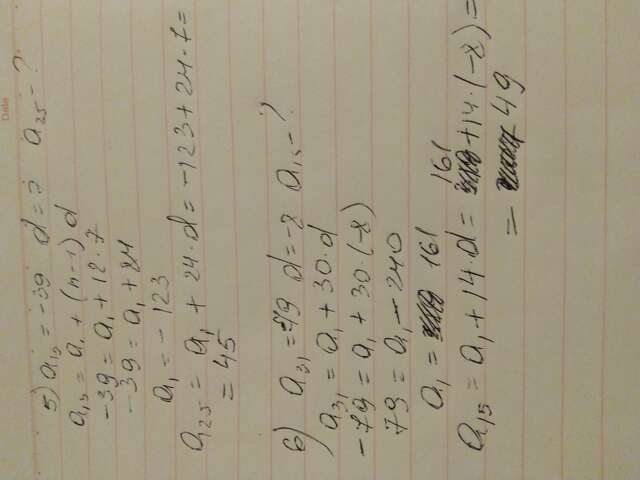 Data
5) a₁₃ = -39 d = 7 a₂₅ - ?
a₁₃ = a₁ + (n-1) d
-39 = a₁ + 12·7
-39 = a₁ + 84
a₁ = -123
a₂₅ = a₁ + 24·d = -123 + 24·7 =
= 45
6) a₃₁ = 79 d = -8 a₁₅ - ?
a₃₁ = a₁ + 30·d
-79 = a₁ + 30·(-8)
79 = a₁ - 240
a₁ = 161
a₁₅ = a₁ + 14·d = 161 + 14·(-8) =
= 49